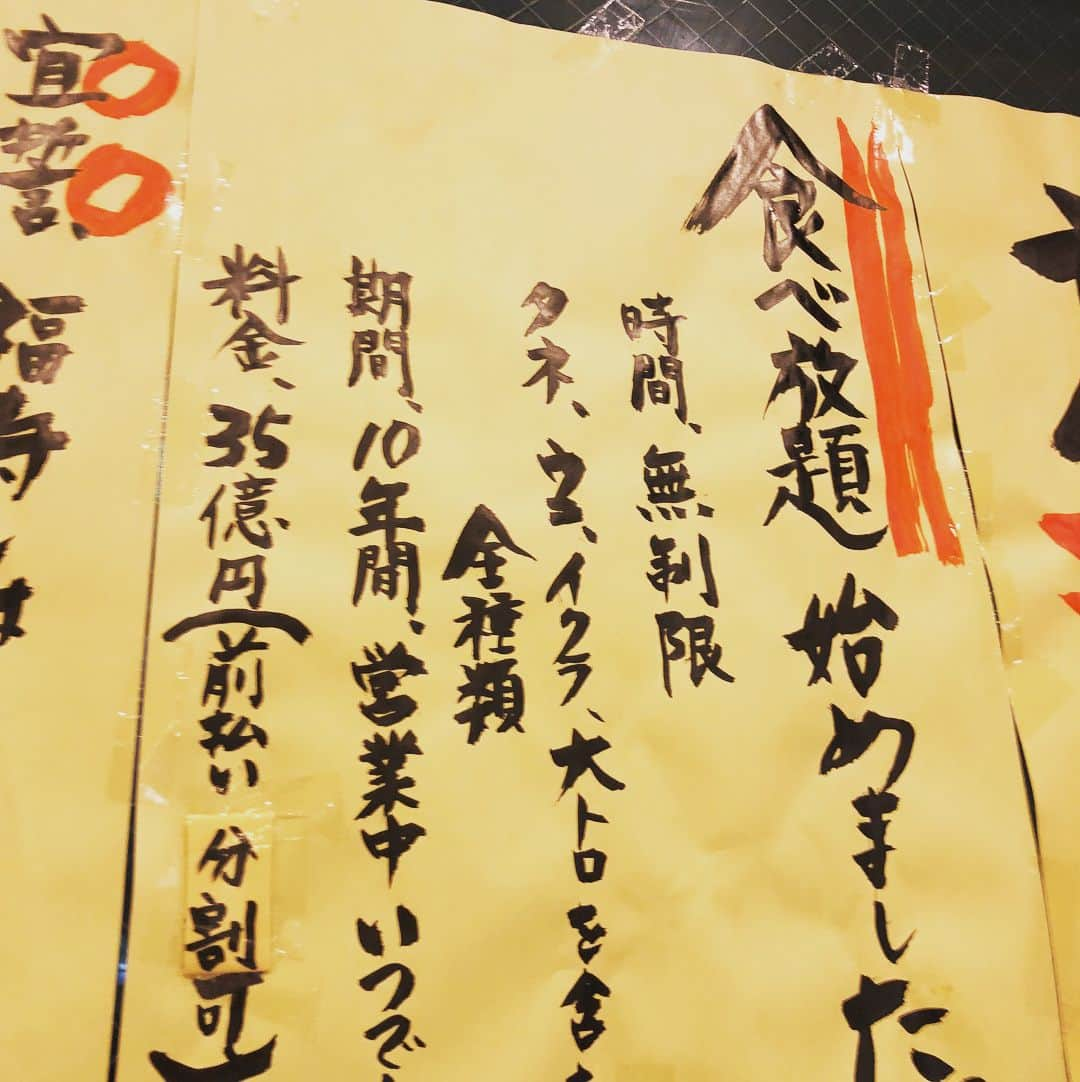 食べ放題 始めました
時間、無制限
タネ、ウニ、イクラ、大トロを含
全種類
期間、10年間、営業中 いつで
料金、35億円(前払い 分割可)
宣誓、福寺